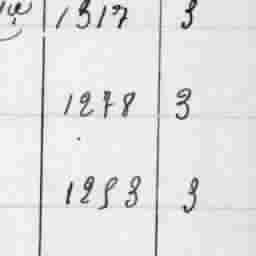 1317 3
1278 3
1293 3